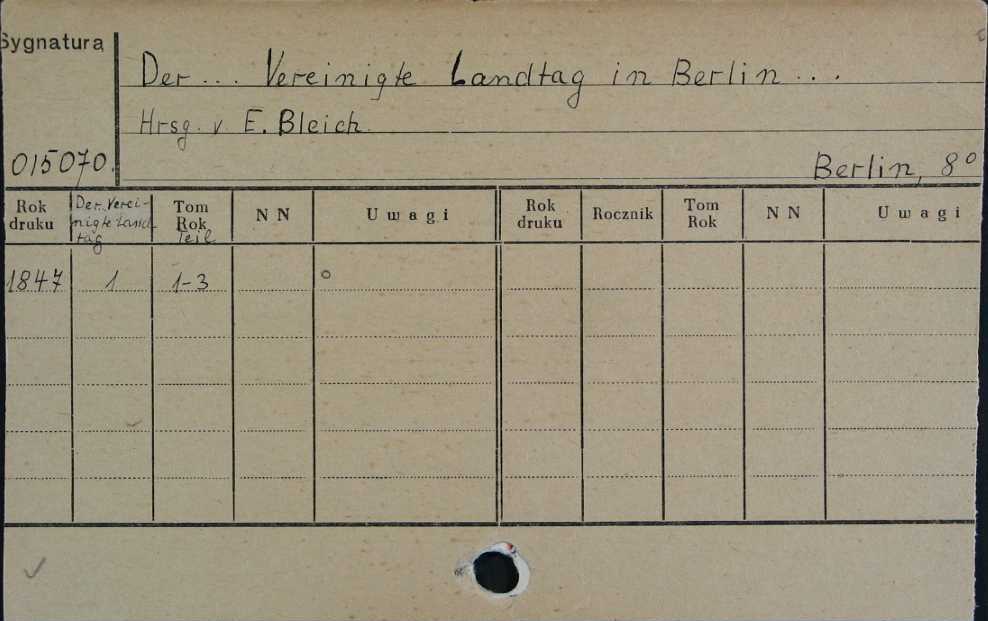 Sygnatura
Der ... Vereinigte Landtag in Berlin ...
Hrsg. v. E. Bleich.
015070.
Berlin, 8°
Rok druku Der Vereinigte Landtag Tom Rok Teil N N Uwagi Rok druku Rocznik Tom Rok N N Uwagi
1847 1 1-3 °